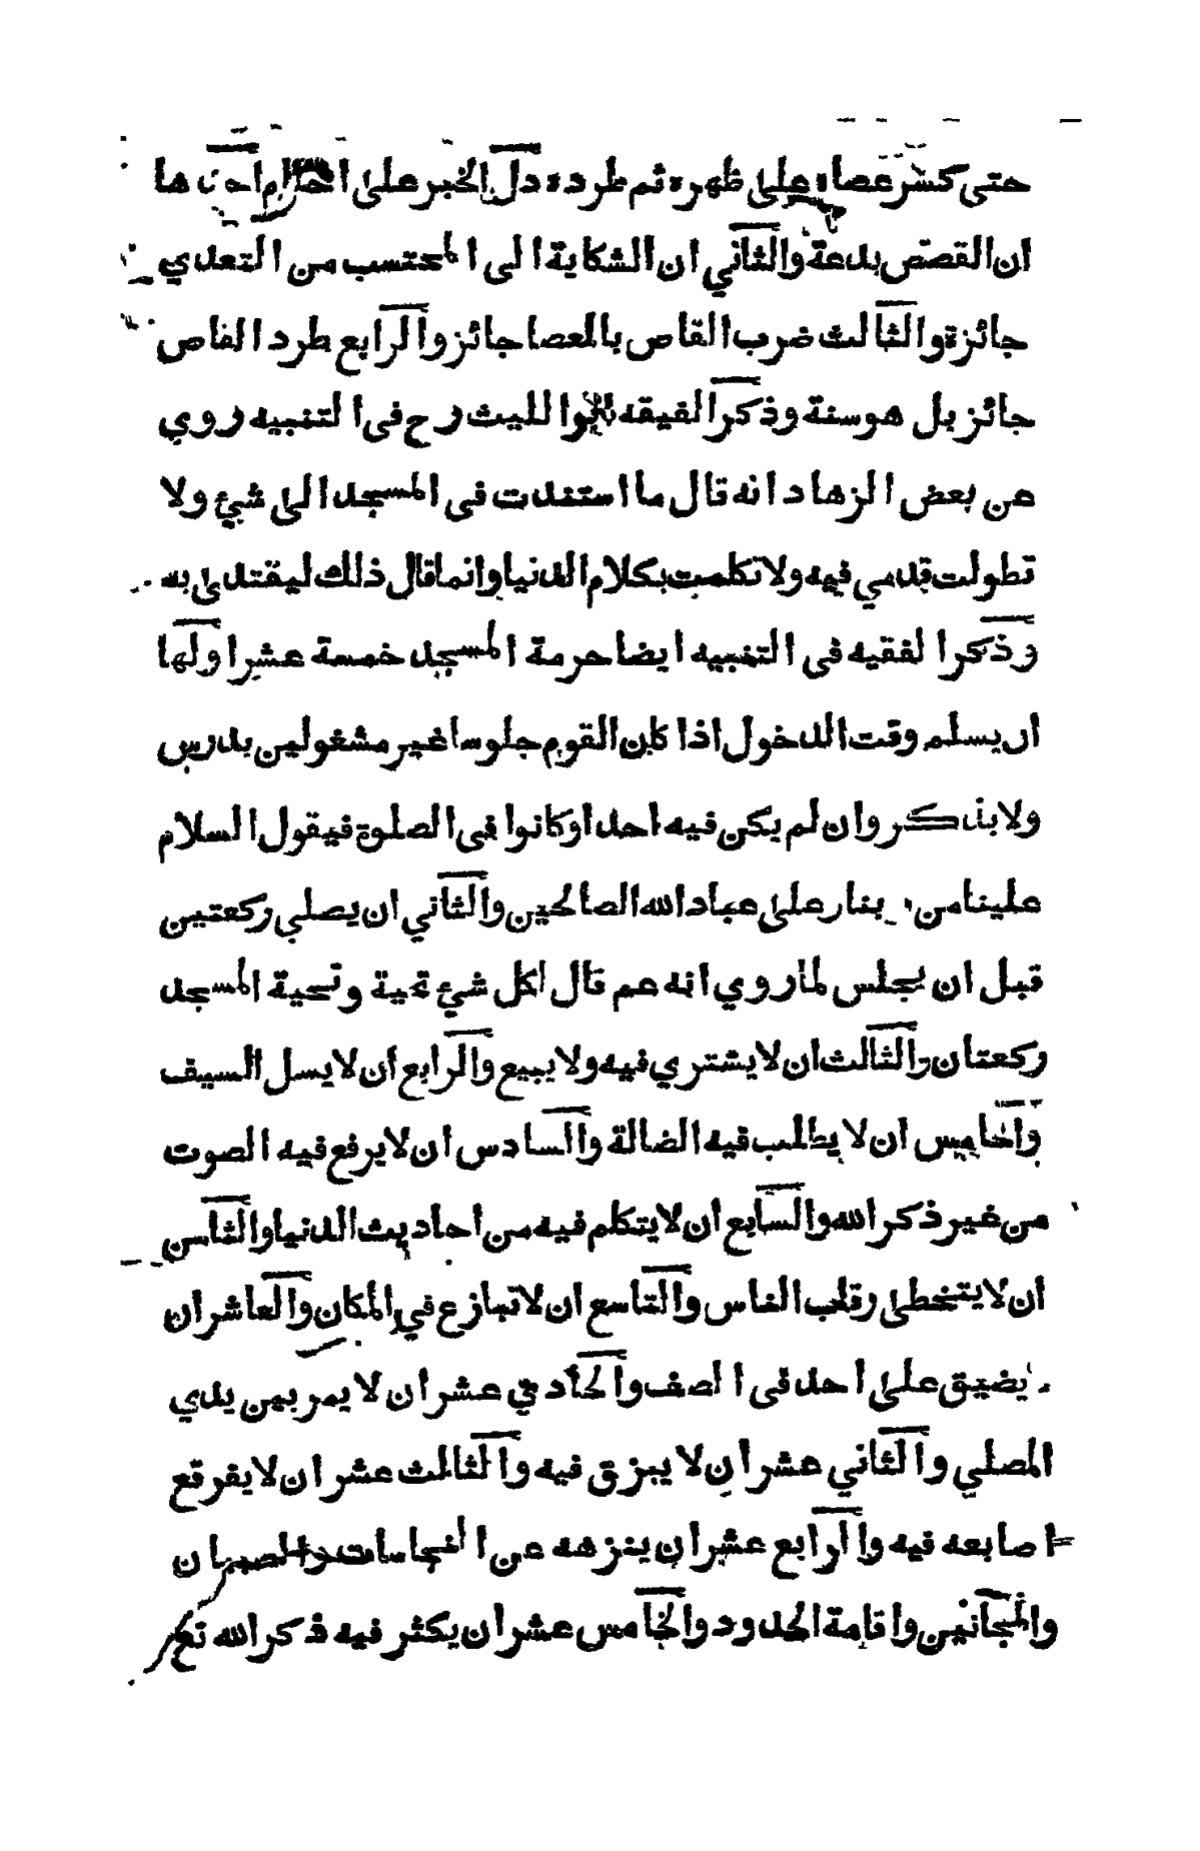 حتى كسر عصاه على ظهره ثم طرده دل الخبر على احكام احدها
ان القصص بدعة والثاني ان الشكاية الى المحتسب من التعدي
جائزة والثالث ضرب القاص بالعصا جائز والرابع طرد القاص
جائز بل هو سنة وذكر الفقيه ابوا لليث رح فى التنبيه روي
عن بعض الزهاد انه قال ما استندت فى المسجد الى شيئ ولا
تطولت قدمي فيه ولا تكلمت بكلام الدنيا وانما قال ذلك ليقتدى به
وذكر الفقيه فى التنبيه ايضا حرمة المسجد خمسة عشر اولها
ان يسلم وقت الدخول اذا كان القوم جلوسا غير مشغولين بدرس
ولا بذكر وان لم يكن فيه احد او كانوا فى الصلوة فيقول السلام
علينا من ربنا وعلى عباد الله الصالحين والثاني ان يصلي ركعتين
قبل ان يجلس لما روي انه عم قال لكل شيئ تحية وتحية المسجد
ركعتان والثالث ان لا يشتري فيه ولا يبيع والرابع ان لا يسل السيف
والخامس ان لا يطلب فيه الضالة والسادس ان لا يرفع فيه الصوت
من غير ذكر الله والسابع ان لا يتكلم فيه من احاديث الدنيا والثامن
ان لا يتخطى رقاب الناس والتاسع ان لا تنازع في المكان والعاشر ان
يضيق على احد فى الصف والحادي عشر ان لا يمر بين يدي
المصلي والثاني عشر ان لا يبزق فيه والثالث عشر ان لا يفرقع
اصابعه فيه والرابع عشر ان ينزهه عن النجاسات والصبيان
والمجانين واقامة الحدود والخامس عشر ان يكثر فيه ذكر الله تع